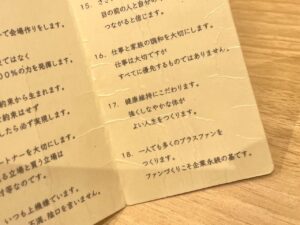 て会場作りをします。
ではなく
００％の力を発揮します。
約束から生まれます。
約束はせず
したら必ず実現します。
ートナーを大切にします。
る立場と買う立場は
対等なのです。
いつも上機嫌です。
不満、陰口を言いません。
15.
目の前の人と自分の
つながると信じます。
16. 仕事と家族の調和を大切にします。
仕事は大切ですが
すべてに優先するものではありません。
17. 健康維持にこだわります。
強くしなやかな体が
よい人生をつくります。
18. 一人でも多くのプラスファンを
つくります。
ファンづくりこそ企業永続の基です。